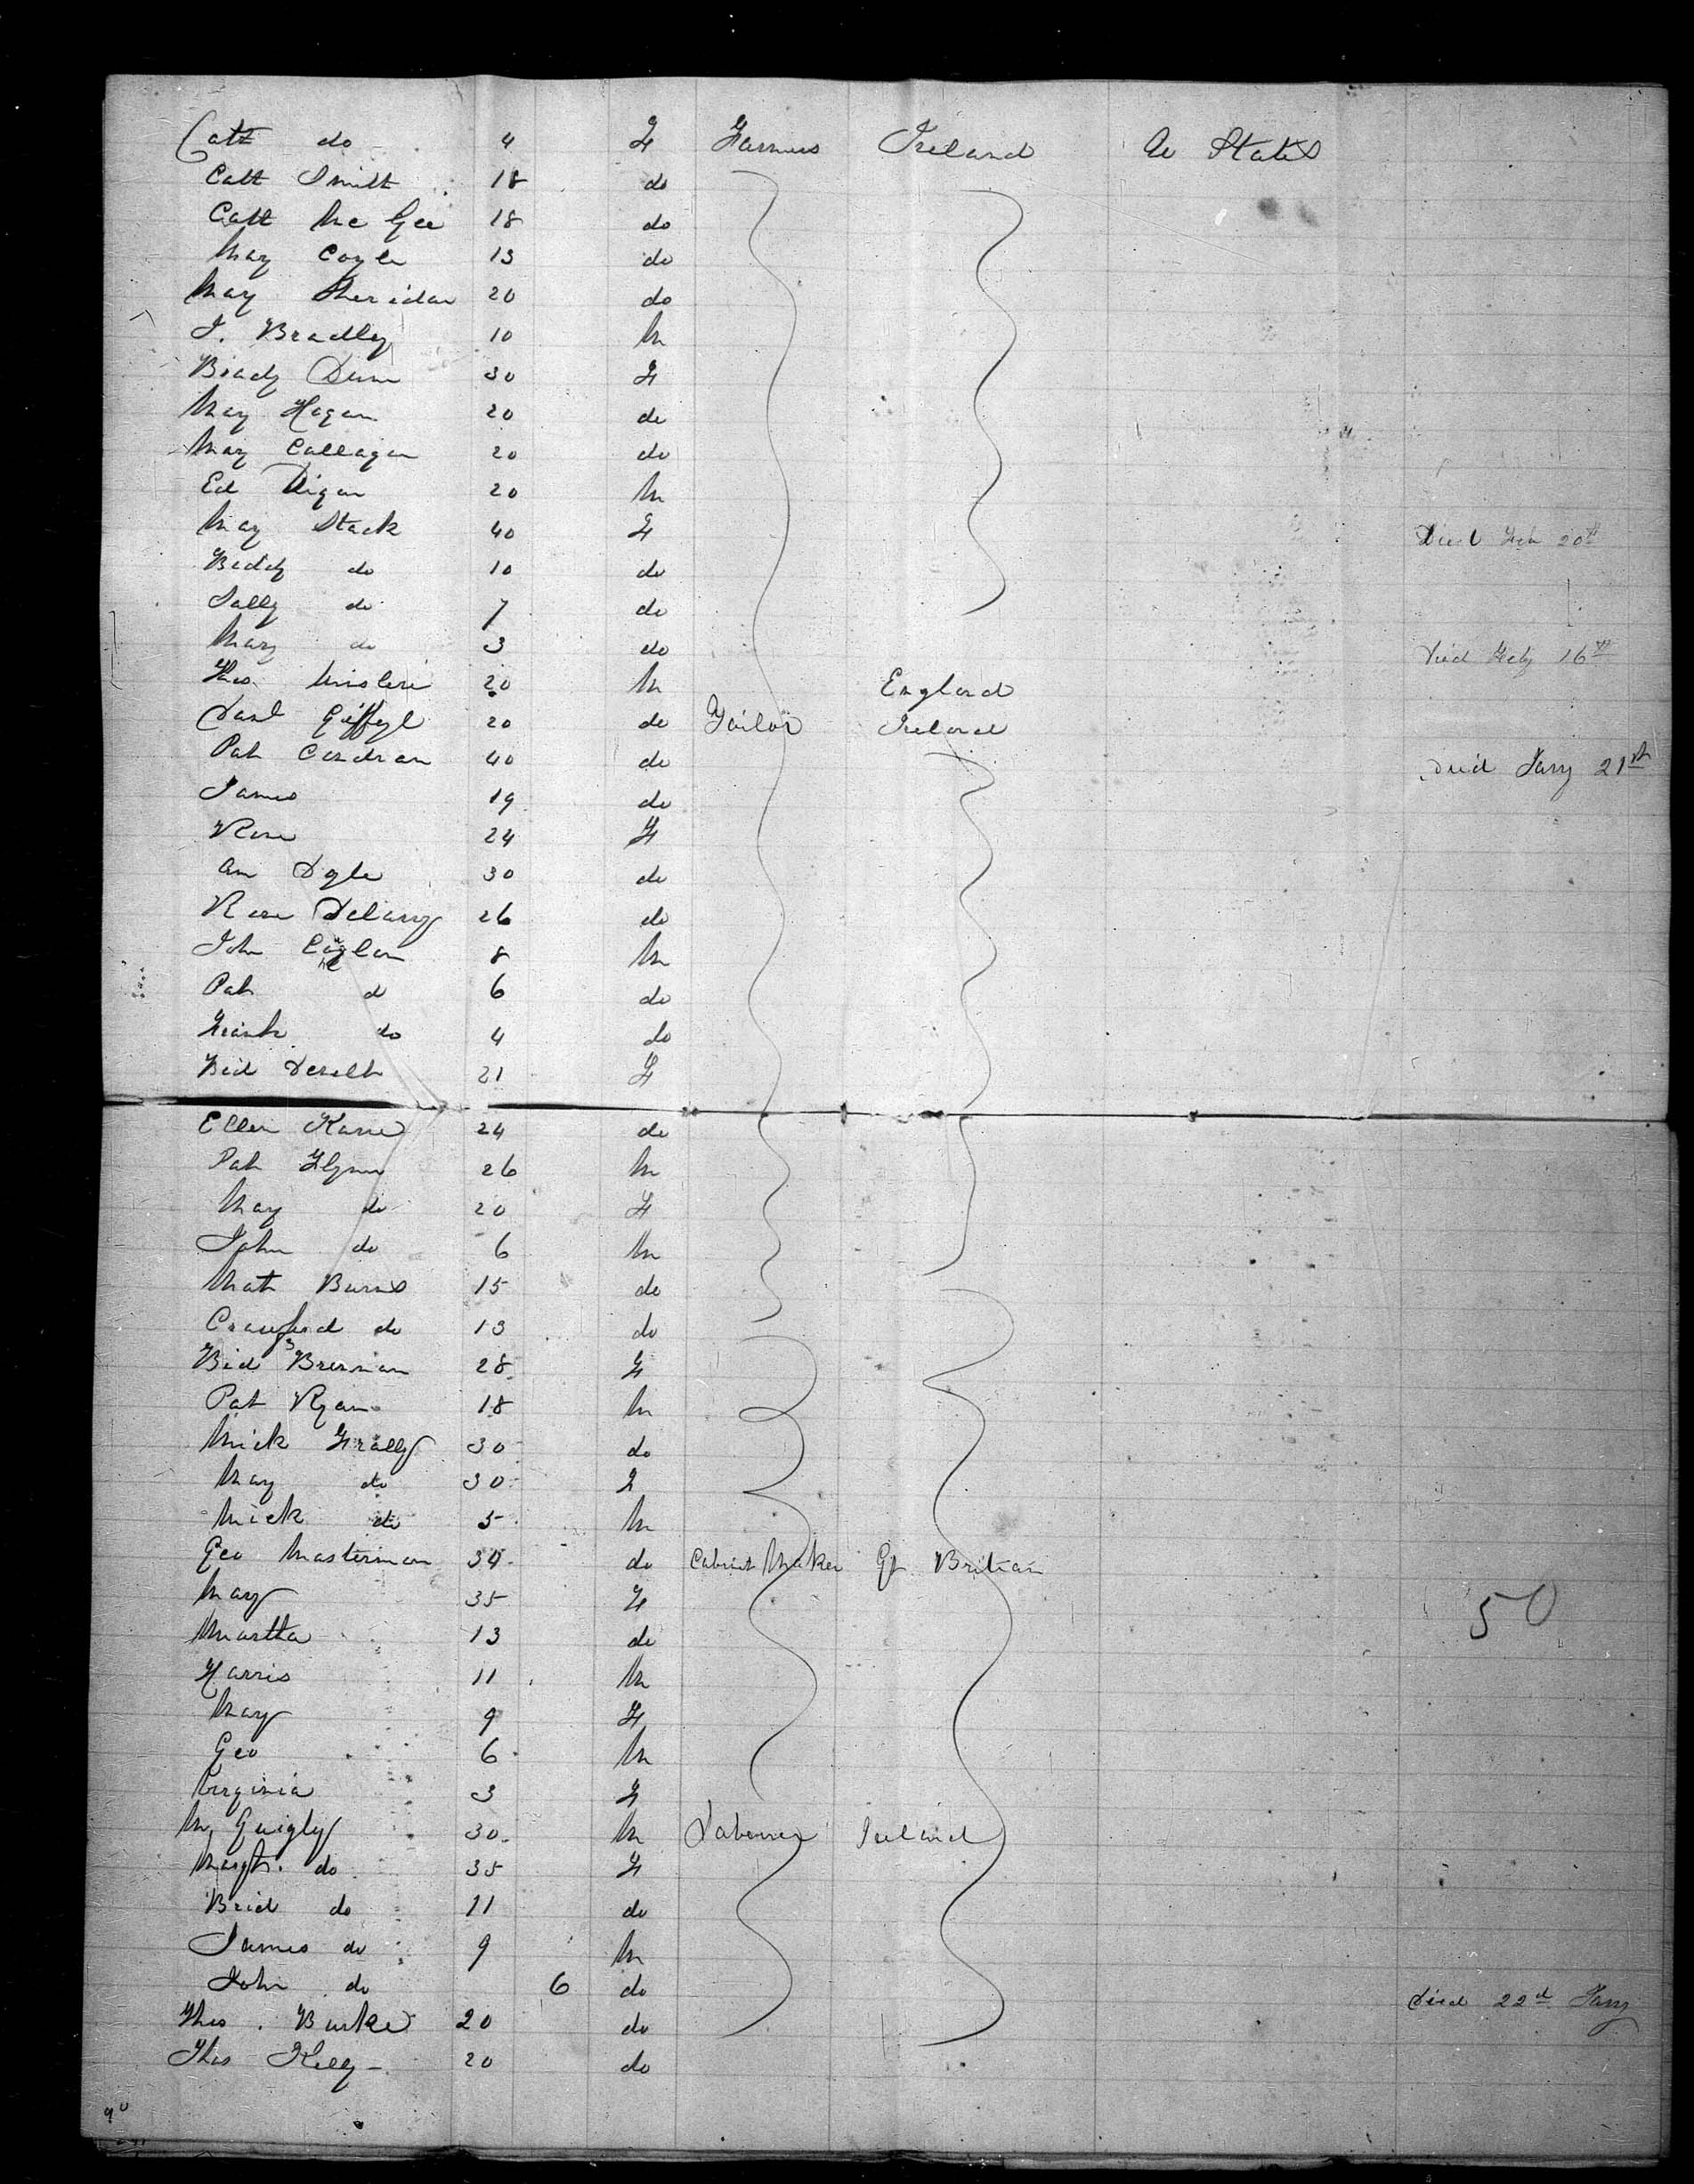 Cath do 4 F Farmers Ireland U States
Cath Smith 18 do
Cath Mc Gee 18 do
Mary Coyle 13 do
Mary Sheridan 20 do
J. Bradley 10 M
Biddy Dunn 30 F
Mary Hagan 20 do
Mary Callagan 20 do
Ed Digan 20 M
Mary Stack 40 F Died Feb 20th
Biddy do 10 do
Sally do 7 do
Mary do 3 do Died Feby 16th
Thos. 20 M England
Danl 20 do Tailor Ireland
Pat Condran 40 do Died Jany 21st
James 19 do
Rose 24 F
Ann Doyle 30 do
Rose Delany 26 do
John 8 M
Pat do 6 do
Frank do 4 do
Bid 21 F
Ellen Kane 24 do
Pat Flynn 26 M
Mary do 20 F
John do 6 M
Math Burns 15 do
Crawford do 13 do
Bid Brennan 28 F
Pat Ryan 18 M
Mick 30 do
Mary do 30 F
Mick do 5 M
Geo Masterman 34 do Cabinet Maker Gt Britian
Mary 35 F
Martha 13 do
50
Harris 11 M
Mary 9 F
Geo 6 M
Virginia 3 F
M Quigly 30 M Labourer Ireland
Margt. do 35 F
Brid do 11 do
James do 9 M
John do 6 do Died 22d Jany
Thos. Burke 20 do
Thos Kelly 20 do